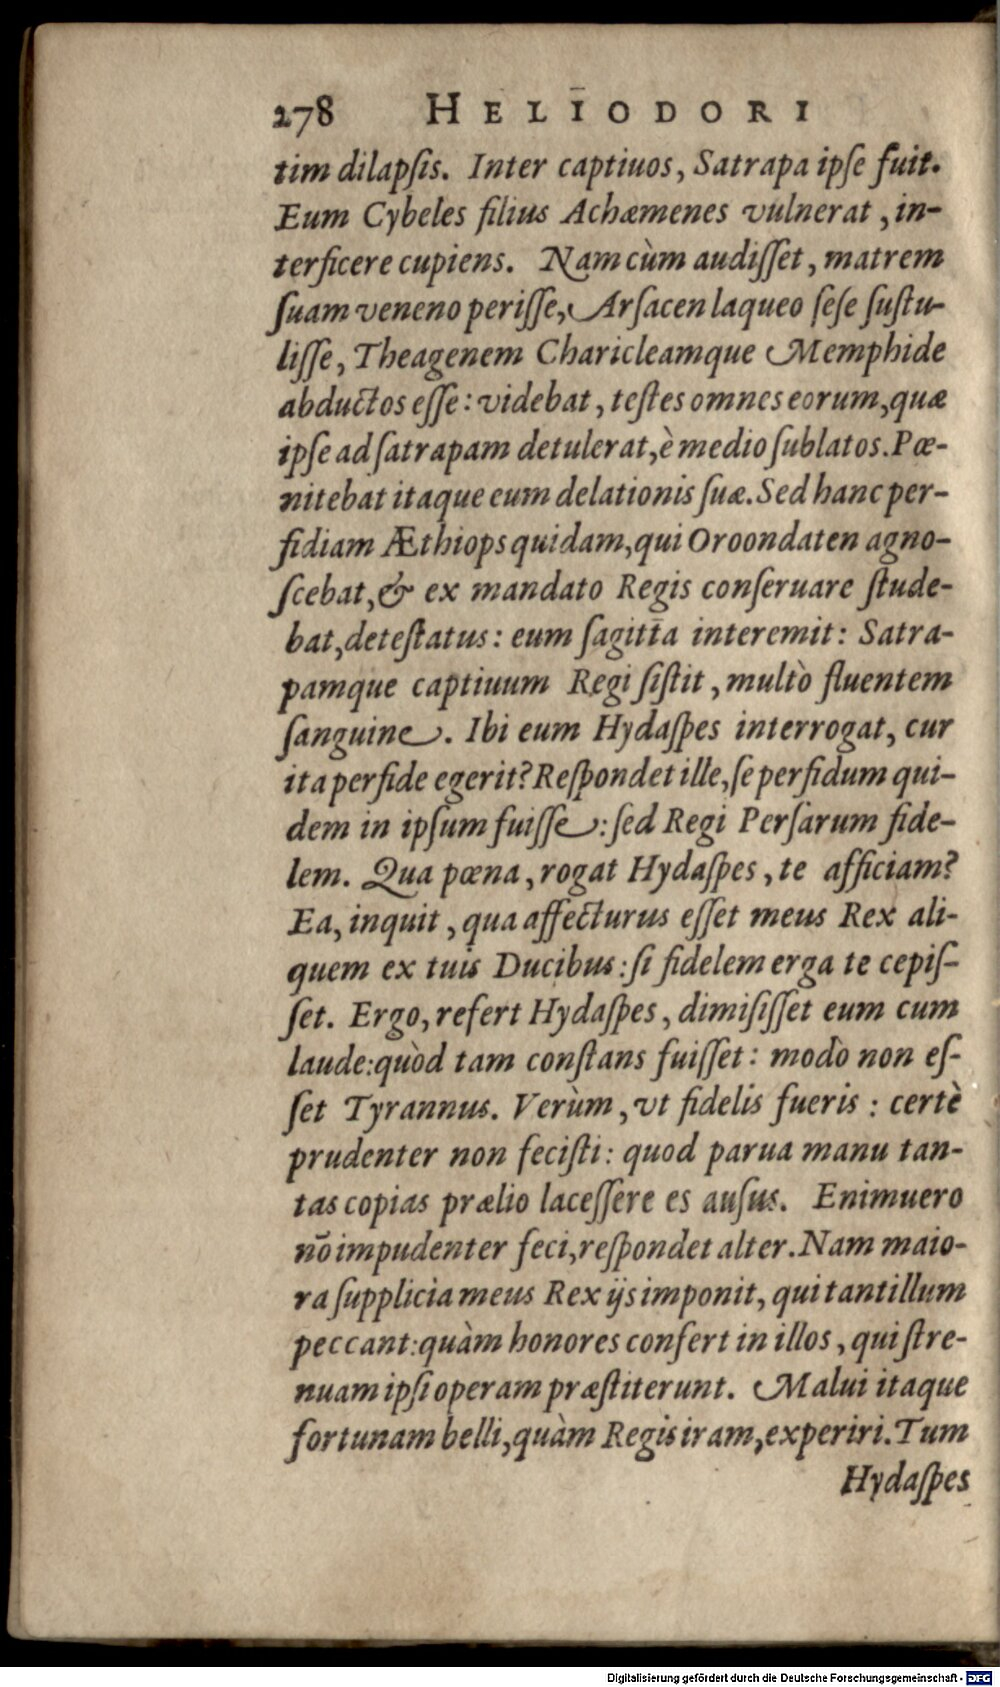 278 HELIODORI
tim dilapſis. Inter captiuos, Satrapa ipſe fuit.
Eum Cybeles filius Achæmenes vulnerat, in-
terficere cupiens. Nam cùm audiſſet, matrem
ſuam veneno periſſe, Arſacen laqueo ſeſe ſuſtu-
liſſe, Theagenem Charicleamque Memphide
abductos eſſe: videbat, teſtes omnes eorum, quæ
ipſe ad ſatrapam detulerat, è medio ſublatos. Pœ-
nitebat itaque eum delationis ſuæ. Sed hanc per-
fidiam Æthiops quidam, qui Oroondaten agno-
ſcebat, & ex mandato Regis conſeruare ſtude-
bat, deteſtatus: eum ſagitta interemit: Satra-
pamque captiuum Regi ſiſtit, multò fluentem
ſanguine. Ibi eum Hydaſpes interrogat, cur
ita perfide egerit? Reſpondet ille, ſe perfidum qui-
dem in ipſum fuiſſe: ſed Regi Perſarum fide-
lem. Qua pœna, rogat Hydaſpes, te afficiam?
Ea, inquit, qua affecturus eſſet meus Rex ali-
quem ex tuis Ducibus: ſi fidelem erga te cepiſ-
ſet. Ergo, refert Hydaſpes, dimiſiſſet eum cum
laude: quòd tam conſtans fuiſſet: modò non eſ-
ſet Tyrannus. Verùm, vt fidelis fueris: certè
prudenter non feciſti: quod parua manu tan-
tas copias prælio laceſſere es auſus. Enimuero
nō impudenter feci, reſpondet alter. Nam maio-
ra ſupplicia meus Rex ijs imponit, qui tantillum
peccant: quàm honores confert in illos, qui ſtre-
nuam ipſi operam præſtiterunt. Malui itaque
fortunam belli, quàm Regis iram, experiri. Tum
Hydaſpes
Digitalisierung gefördert durch die Deutsche Forschungsgemeinschaft - DFG